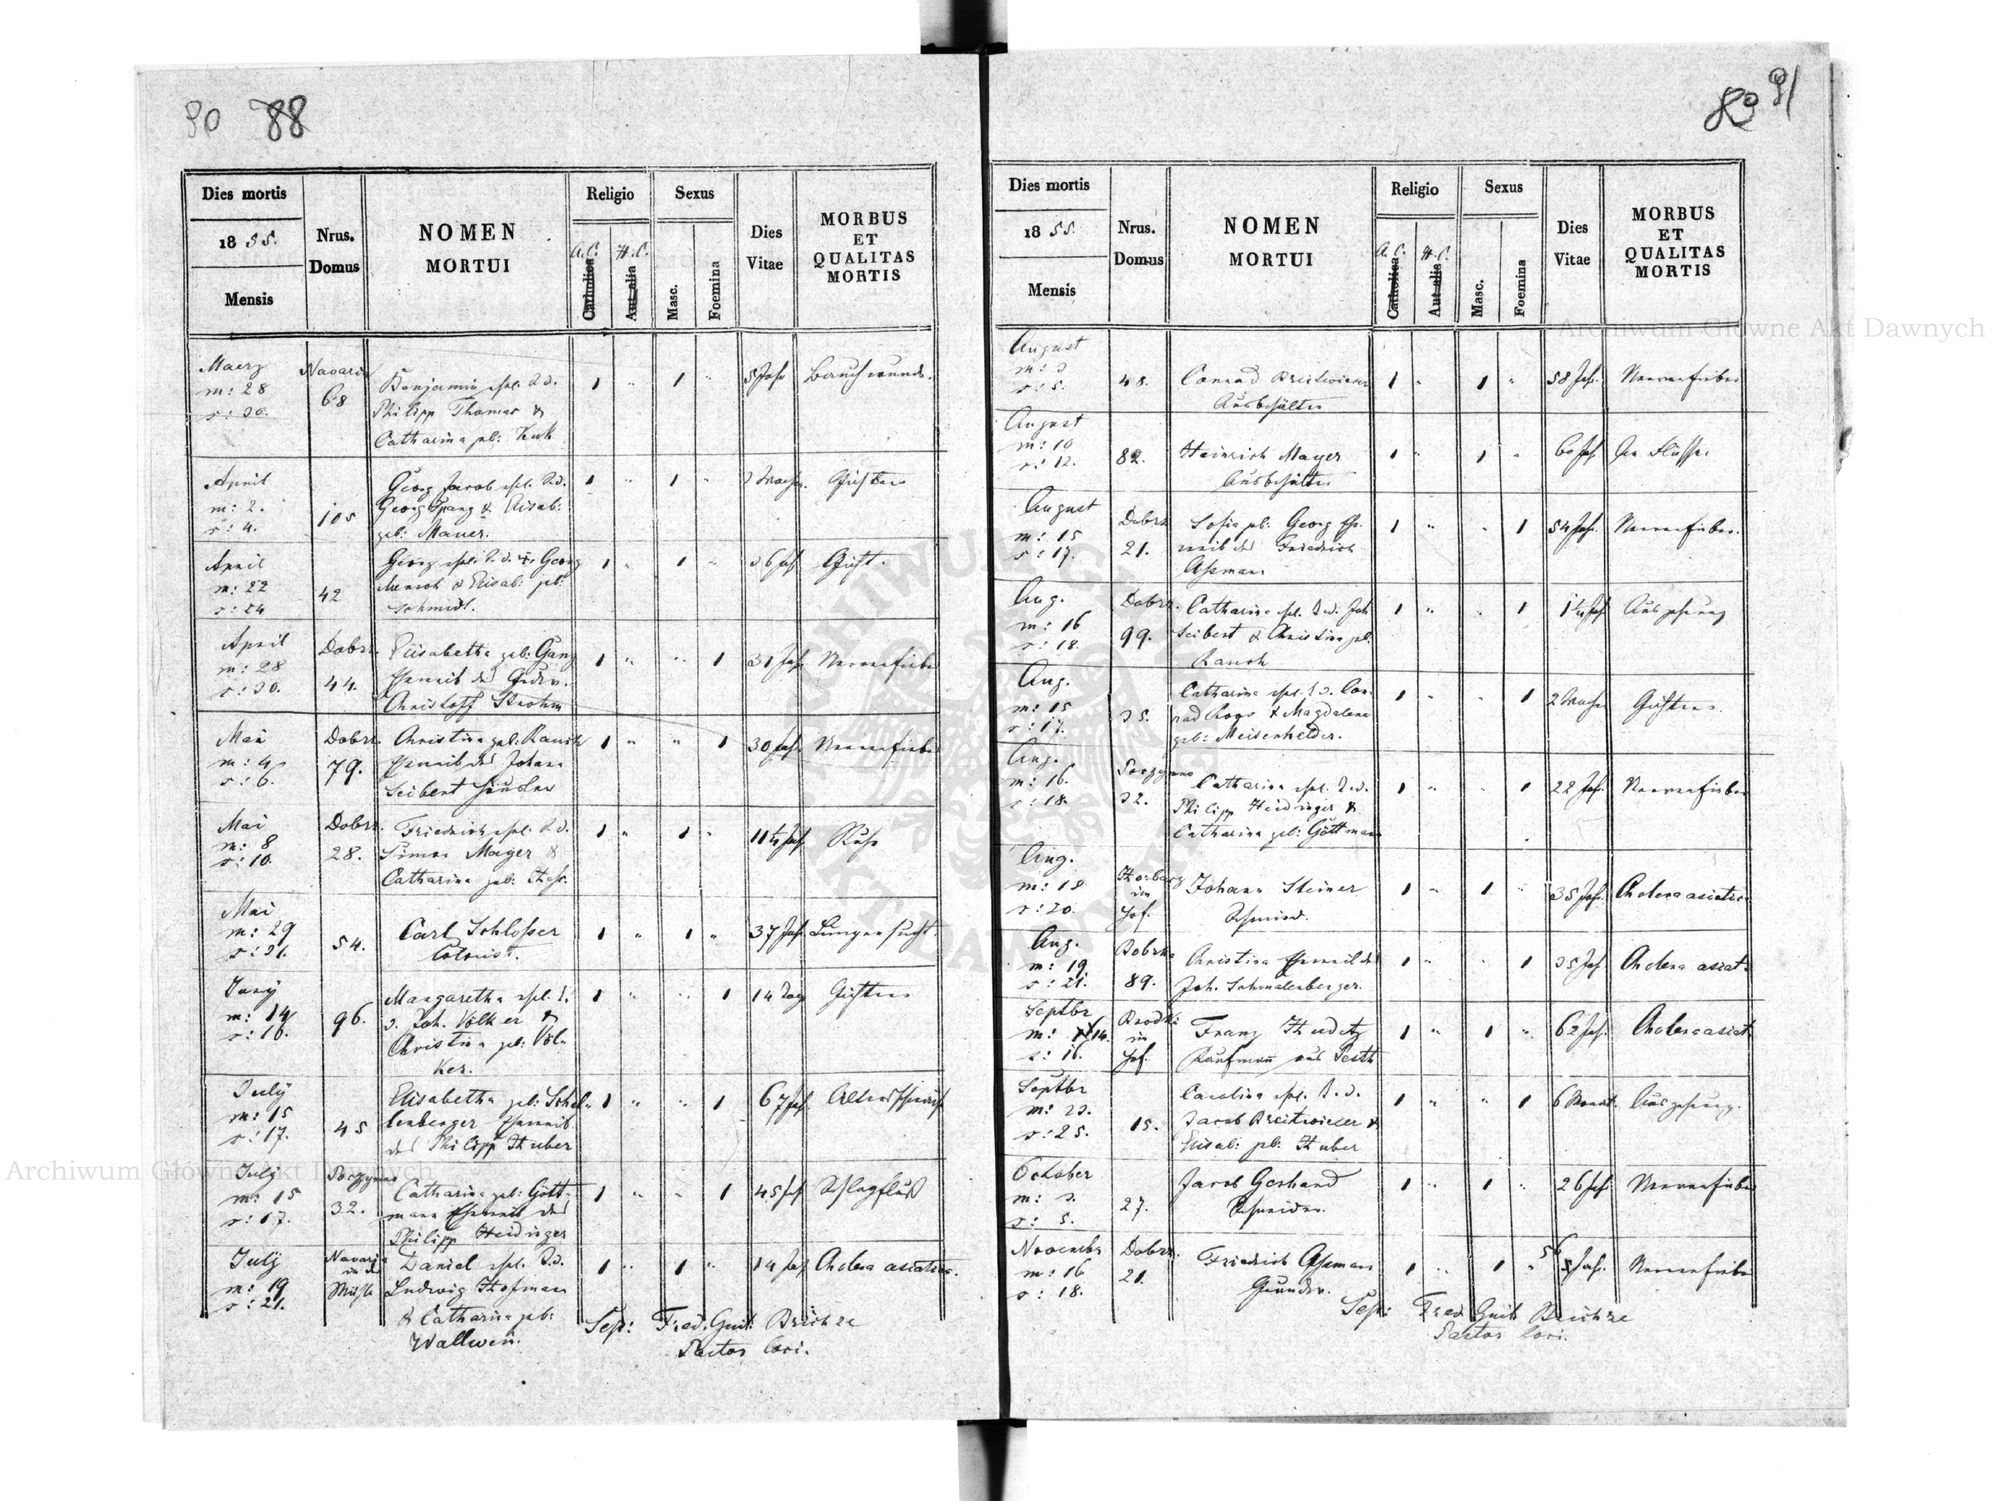 90 88
Dies mortis
1855.
Mensis
Nrus.
Domus
NOMEN
MORTUI
Religio
A.C. H.C.
Catholica
Aut alia
Sexus
Masc.
Foemina
Dies
Vitae
MORBUS
ET
QUALITAS
MORTIS
Maerz
m: 28
s: 30.
Navaria
68
Benjamin
Philipp Thomas &
Catharina geb: Kuk
1 " 1 "
5 Jahr
April
m: 2.
s: 4.
105
Georg Jacob
Georg Spang & Elisab:
geb: Mauer.
1 " 1 "
3 Wochen
Gichter
April
m: 22
s: 24
42
Georg
& Elisab: geb:
Schmidt.
1 " 1 "
36 Jahr
Gicht.
April
m: 28
s: 30.
Dobrz.
44.
Elisabetha geb: Gang
Eheweib des
Christoff Strohm
1 " " 1
31 Jahr
Nervenfieber
Mai
m: 4
s: 6.
Dobrz.
79.
Christina geb: Rauch
Eheweib des Johann
Seibert
1 " " 1
30 Jahr
Nervenfieber
Mai
m: 8
s: 10.
Dobrz.
28.
Friedrich
Simon Mayer &
Catharina geb:
1 " 1 "
11½ Jahr
Ruhr
Mai
m: 29
s: 31.
54.
Carl Schlosser
Colonist.
1 " 1 "
37 Jahr
Lungensucht.
Juny
m: 14
s: 16.
96.
Margaretha
d. Joh. Völker &
Christina geb: Völ-
ker.
1 " " 1
14 Tage
Gichter
July
m: 15
s: 17.
45
Elisabetha geb: Schel-
lenberger Eheweib
des Philipp Huber
1 " " 1
67 Jahr
Altersschwäche
July
m: 15
s: 17.
32.
Catharina geb: Gött-
mann Eheweib des
Philipp Heidinger
1 " " 1
45 Jahr
Schlagfluß
July
m: 19
s: 21.
Navaria
in der
Mühle
Daniel
Ludwig Hofmann
& Catharina geb:
1 " 1 "
14 Jahr
Cholera asiatica.
Fred. Guil: Reichze
Pastor loci.
89 91
Dies mortis
1855.
Mensis
Nrus.
Domus
NOMEN
MORTUI
Religio
A.C. H.C.
Catholica
Aut alia
Sexus
Masc.
Foemina
Dies
Vitae
MORBUS
ET
QUALITAS
MORTIS
August
m: 3
s: 5.
48.
Conrad Breitwieser
Ausbehälter
1 " 1 "
58 Jahr.
Nervenfieber
August
m: 10
s: 12.
82.
Heinrich Mayer
Ausbehälter
1 " 1 "
60 Jahr
August
m: 15
s: 17.
Dobrz.
21.
Sofia geb: Georg Ehe-
weib des Friedrich
Assmann
1 " " 1
54 Jahr.
Nervenfieber.
Aug.
m: 16
s: 18.
Dobrz.
99.
Catharina Joh.
Seibert & Christina geb.
Rauch
1 " " 1
Auszehrung
Aug.
m: 15
s: 17.
35.
Catharina Con-
rad Roos & Magdalena
geb: Meisenhelder.
1 " " 1
2 Wochen
Gichter.
Aug.
m: 16.
s: 18.
32.
Catharina
Philipp Heidinger &
Catharina geb: Göttmann
1 " " 1
22 Jahr.
Nervenfieber
Aug.
m: 18
s: 20.
im
Hof.
Johann Steiner
Schmied.
1 " 1 "
35 Jahr.
Cholera asiatica
Aug.
m: 19.
s: 21.
Dobrz.
89.
Christina Eheweib des
Joh. Schmalenberger.
1 " " 1
35 Jahr
Cholera asiat.
Septbr
m: 14.
s: 16.
Brodki
im
Hof.
Franz Hudetz
Kaufmann aus Pesth
1 " 1 "
62 Jahr.
Cholera asiat.
Septbr
m: 23.
s: 25.
15.
Carolina
Jacob Breitwieser &
Elisab: geb: Huber
1 " " 1
6 Monat.
Auszehrung.
October
m: 3.
s: 5.
27.
Jacob Gerhard
Schneider.
1 " 1 "
26 Jahr.
Nervenfieber
Novembr
m: 16
s: 18.
Dobrz.
21.
Friedrich Assmann
Grundw.
1 " 1 "
56 Jahr.
Nervenfieber
Fred. Guil: Reichze
Pastor loci.
Archiwum Główne Akt Dawnych
Archiwum Główne Akt Dawnych
ARCHIWUM GŁÓWNE AKT DAWNYCH